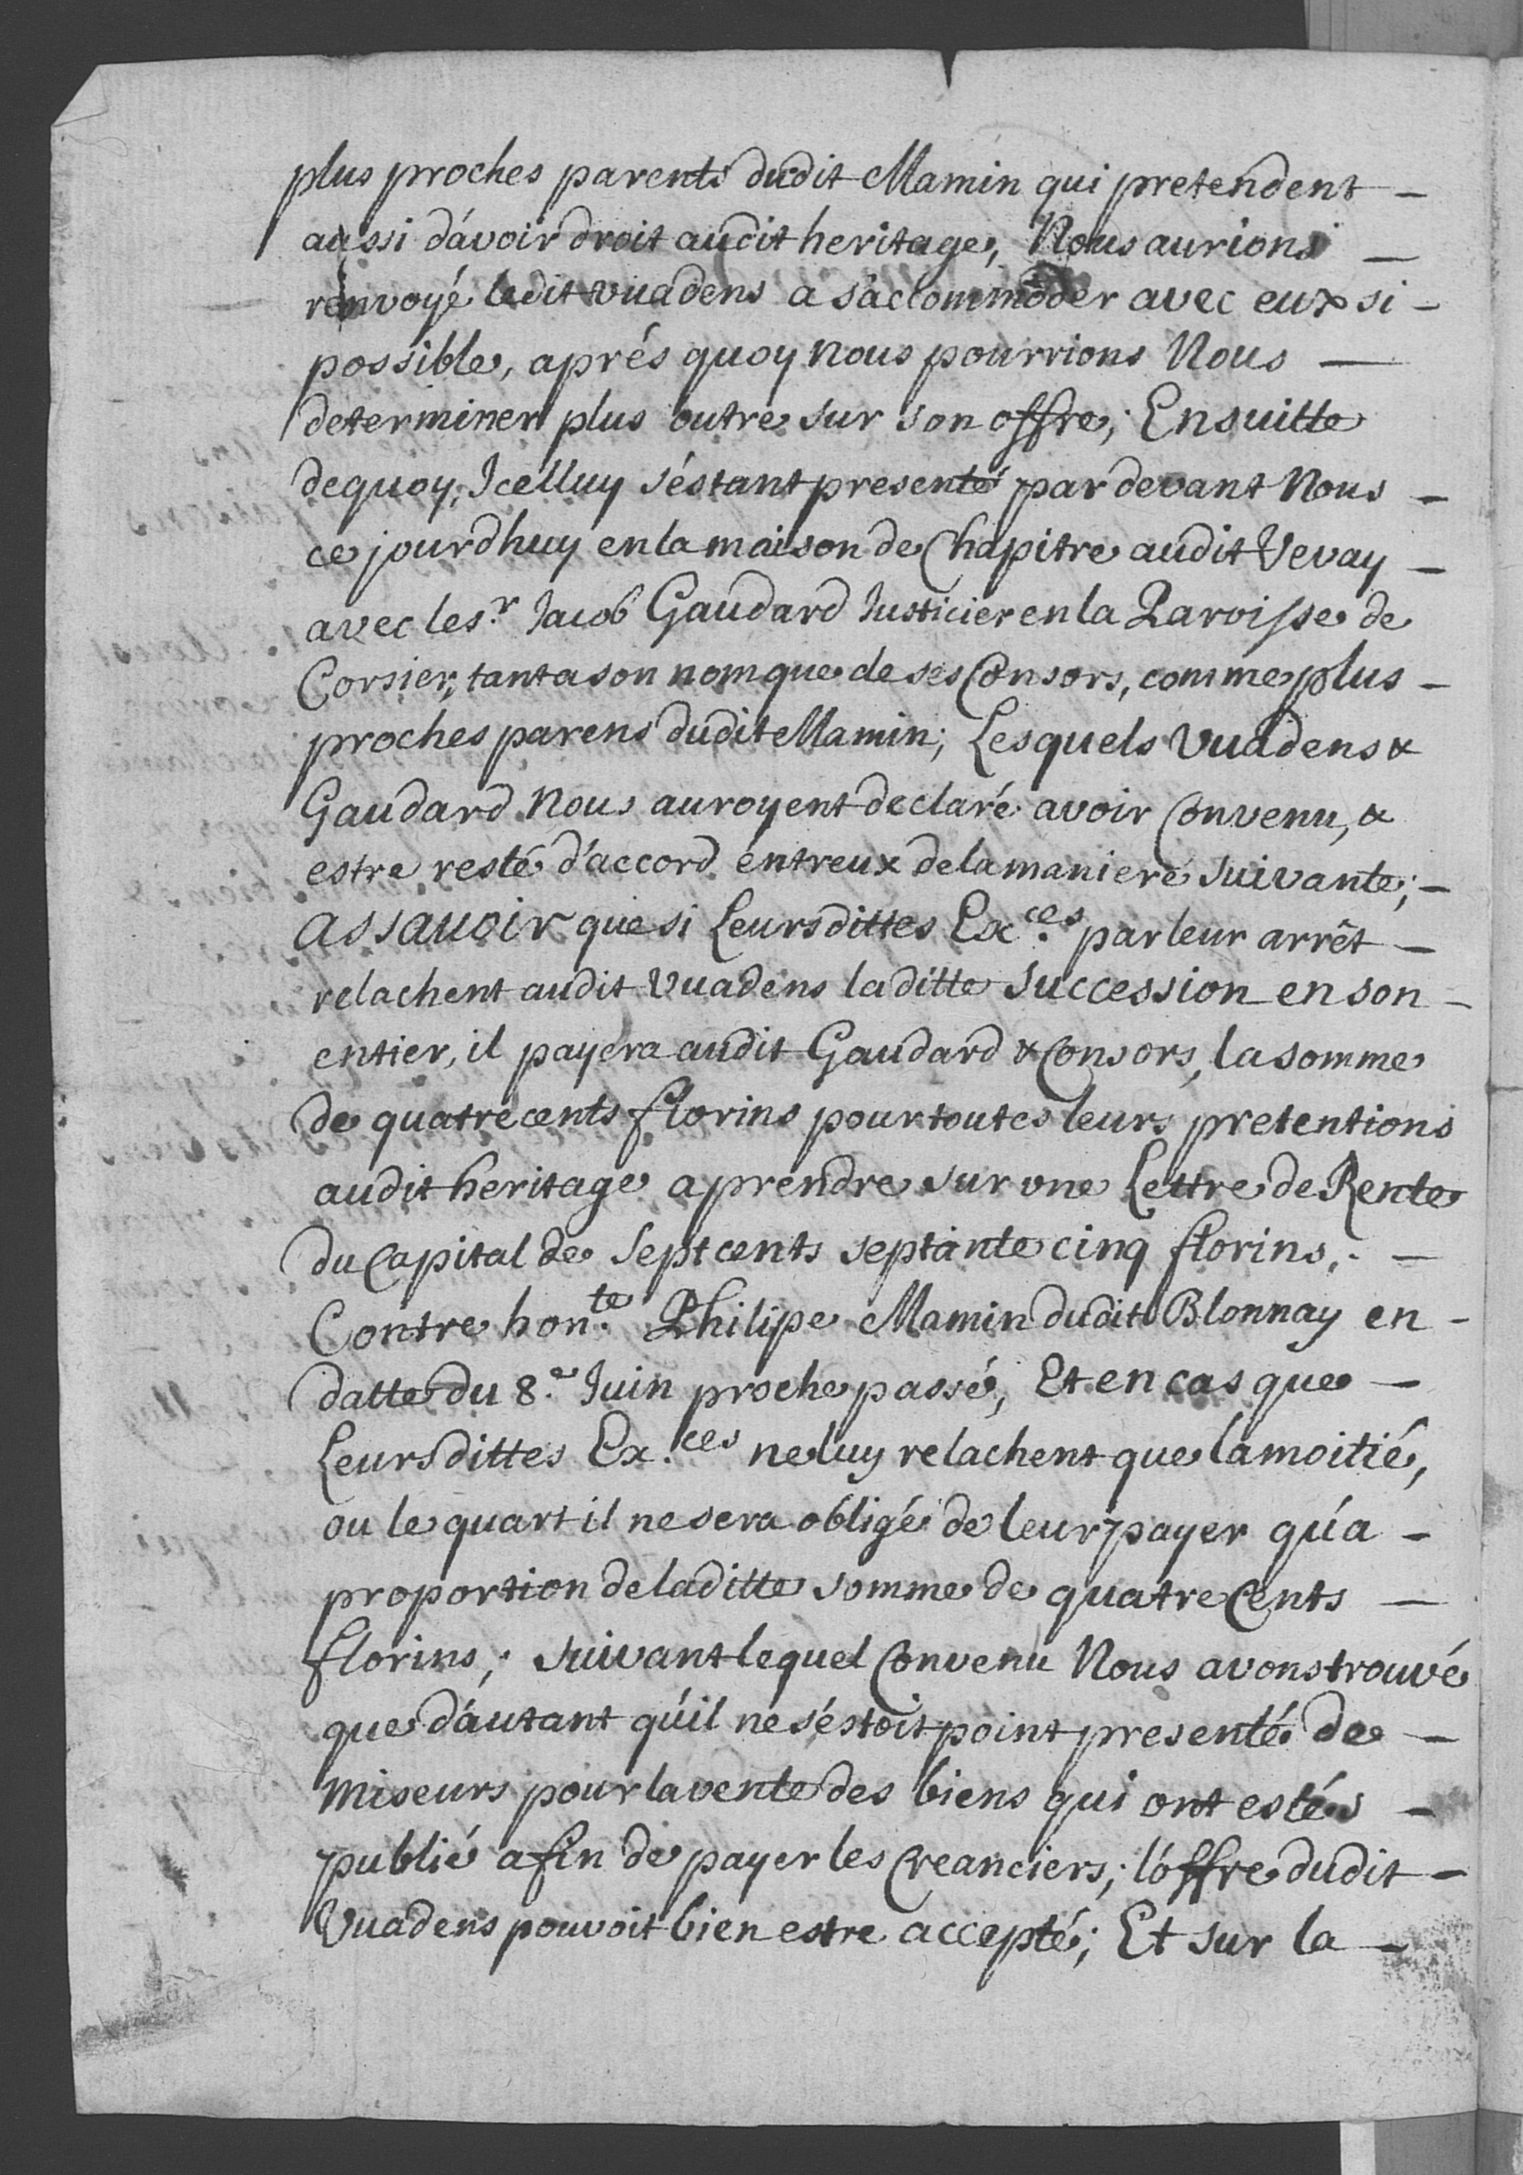 plus proches parents dudit Mamin qui pretendent —
aussi d'avoir droit audit heritage, Nous aurions —
renvoyé ledit vuadens a s'accommoder avec eux si —
possible, aprés quoy nous pourrions Nous —
determiner plus outre sur son offre; Ensuitte
dequoy, Icelluy s'estant presenté par devant Nous —
ce jourdhuy en la maison de Chapitre audit Vevay —
avec le s.r Jacob Gaudard Justicier en la Paroisse de
Corsier, tant a son nom que de ses Consors, comme plus —
proches parens dudit Mamin; Lesquels Vuadens &
Gaudard Nous auroyent declaré avoir Convenu, &
estre resté d'accord entreux de la maniere suivante; —
assavoir que si Leursdittes Ex.ces par leur arrêt —
relachent audit Vuadens laditte succession en son —
entier, il payera audit Gaudard & Consors, la somme
de quatre cents florins pour toutes leurs pretentions
audit heritage a prendre sur une Lettre de Rente
du Capital de sept cents septante cinq florins, —
Contre hon.te Philipe Mamin dudit Blonnay en —
datte du 8.e Juin proche passé, Et en cas que —
Leursdittes Ex.ces ne luy relachent que la moitié,
ou le quart il ne sera obligé de leur payer qu'a —
proportion de laditte somme de quatre Cents —
florins; suivant lequel Convenu Nous avons trouvé
que d'autant qu'il ne s'estoit point presenté de —
Miseurs pour la vente des biens qui ont estés —
publié afin de payer les Creanciers; l'offre dudit —
Vuadens pouvoit bien estre accepté; Et sur la —